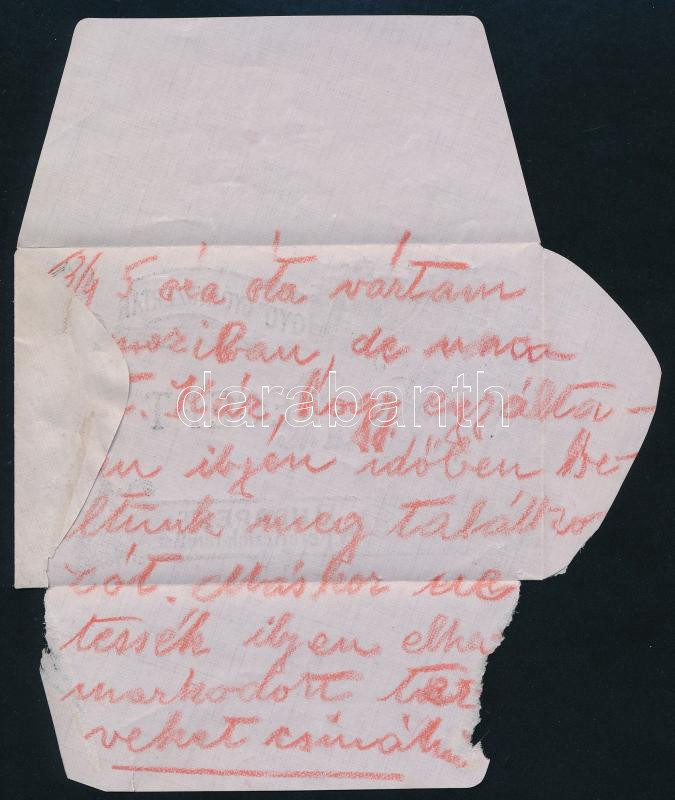 3/4 5 óra óta vártam
moziban, de nasa
t. Kár, hogy egyálta-
án ilyen időben be-
ltünk meg találko
zót. Máskor ne
tessék ilyen elha
markodott ter
veket csinálni
darabanth